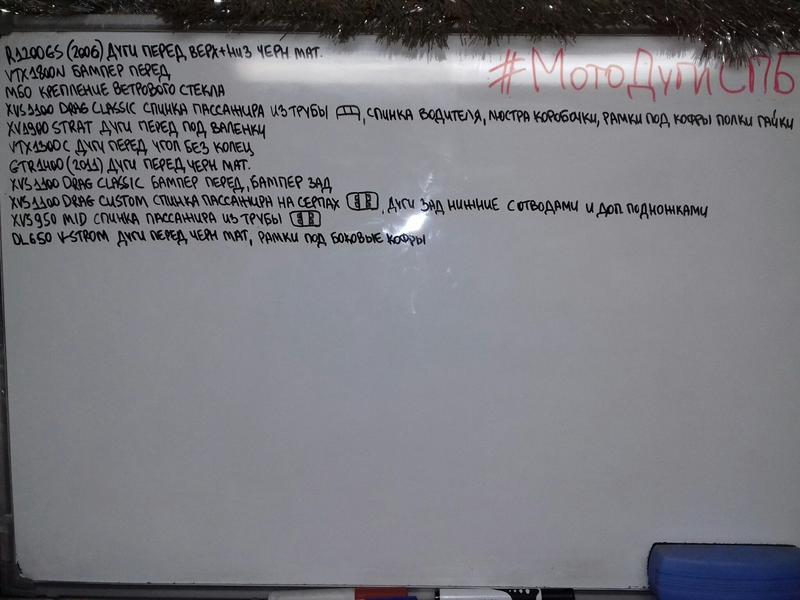 R1200GS (2006) ДУГИ ПЕРЕД ВЕРХ+НИЗ ЧЕРН МАТ.
#МотоДугиСПБ
VTX1800N БАМПЕР ПЕРЕД
M50 КРЕПЛЕНИЕ ВЕТРОВОГО СТЕКЛА
XVS1100 DRAG CLASSIC СПИНКА ПАССАЖИРА ИЗ ТРУБЫ , СПИНКА ВОДИТЕЛЯ, ЛЮСТРА КОРОБОЧКИ, РАМКИ ПОД КОФРЫ ПОЛКИ ГАЙКИ
XV1900 STRAT ДУГИ ПЕРЕД ПОД ВАЛЕНКИ
VTX1300C ДУГИ ПЕРЕД УГОЛ БЕЗ КОЛЕЦ
GTR1400 (2011) ДУГИ ПЕРЕД ЧЕРН МАТ.
XVS1100 DRAG CLASSIC БАМПЕР ПЕРЕД, БАМПЕР ЗАД
XVS1100 DRAG CUSTOM СПИНКА ПАССАЖИРА НА СЕРПАХ , ДУГИ ЗАД НИЖНИЕ С ОТВОДАМИ И ДОП ПОДНОЖКАМИ
XVS950 MID СПИНКА ПАССАЖИРА ИЗ ТРУБЫ
DL650 V-STROM ДУГИ ПЕРЕД ЧЕРН МАТ, РАМКИ ПОД БОКОВЫЕ КОФРЫ